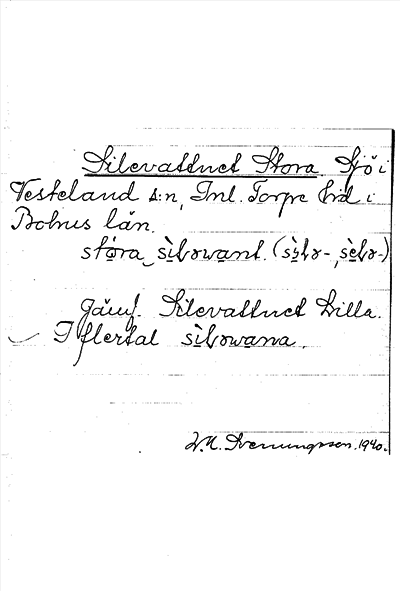 Silevattnet Stora. Sjö i
Vesteland s:n, Inl. Torpe hrd i
Bohus län.
stóra sìləwant. (sìlə-, sèlə-)
Jämf. Silevattnet Lilla.
I flertal sìləwana.
1940.